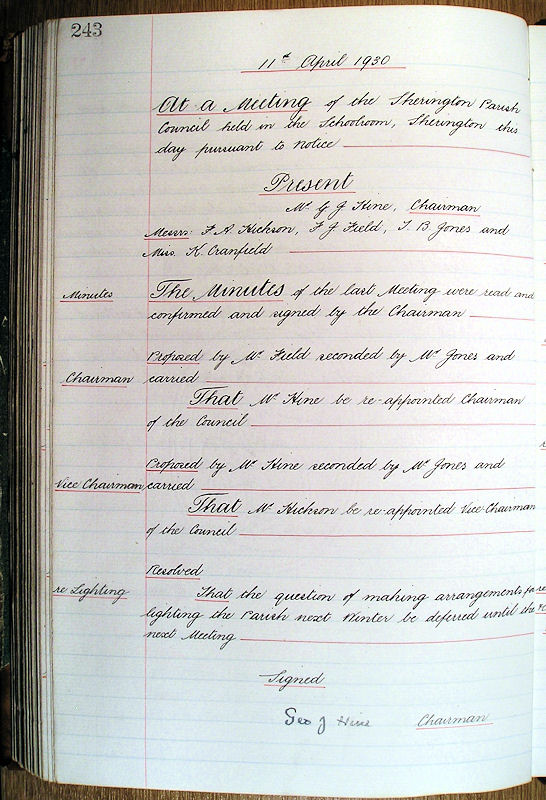 243
11th April 1930
At a Meeting of the Sherington Parish
Council held in the Schoolroom, Sherington this
day pursuant to notice
Present
Mr G J Hine, Chairman
Messrs F. A. Hickson, F J Field, T. B. Jones and
Miss K. Cranfield
Minutes The Minutes of the last Meeting were read and
confirmed and signed by the Chairman
Proposed by Mr Field seconded by Mr Jones and
Chairman carried
That Mr Hine be re-appointed Chairman
of the Council
Proposed by Mr Hine seconded by Mr Jones and
Vice Chairman carried
That Mr Hickson be re-appointed Vice-Chairman
of the Council
Resolved
re Lighting That the question of making arrangements for
lighting the Parish next Winter be deferred until the
next Meeting
Signed
Geo J Hine Chairman